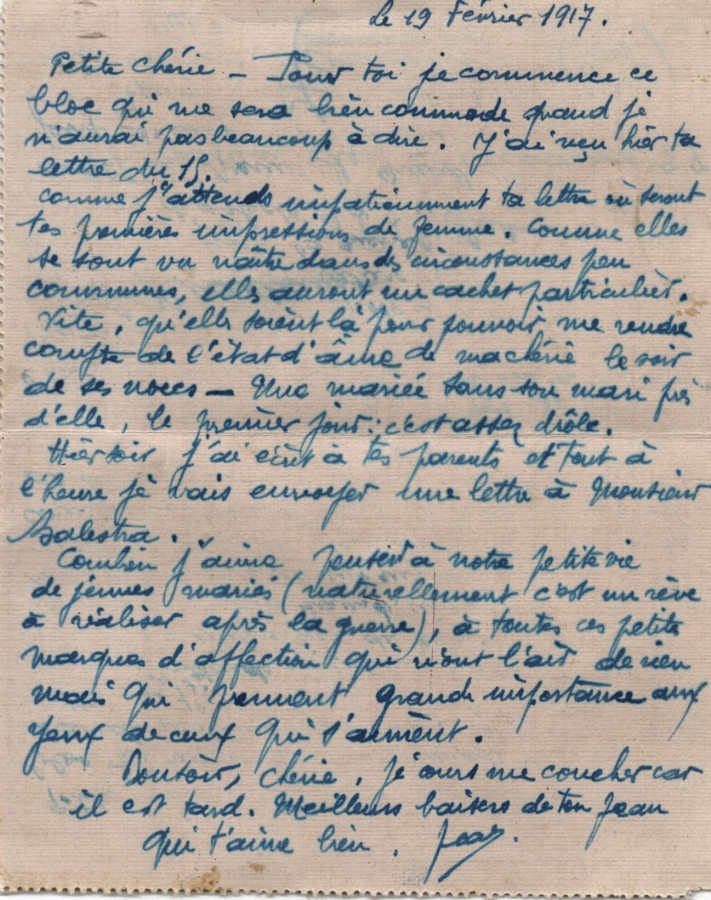 Le 19 Février 1917.
Petite chérie - Pour toi je commence ce
bloc qui me sera bien commode quand je
n'aurai pas beaucoup à dire. J'ai reçu hier ta
lettre du 15.
Comme j'attends impatiemment ta lettre où seront
tes premières impressions de femme. Comme elles
se sont vu naître dans des circonstances peu
communes, elles auront un cachet particulier.
Vite, qu'elles soient là pour pouvoir me rendre
compte de l'état d'âme de ma chérie le soir
de ses noces - Une mariée sans son mari près
d'elle, le premier jour : c'est assez drôle.
Hier soir j'ai écrit à tes parents et tout à
l'heure je vais envoyer une lettre à Monsieur
Balestra.
Combien j'aime penser à notre petite vie
de jeunes mariés (naturellement c'est un rêve
à réaliser après la guerre), à toutes ces petites
marques d'affection qui n'ont l'air de rien
mais qui prennent grande importance aux
yeux de ceux qui s'aiment.
Bonsoir, chérie, je cours me coucher car
il est tard. Meilleurs baisers de ton Jean
qui t'aime bien. Jean